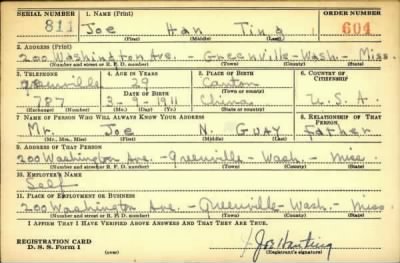 SERIAL NUMBER 1. NAME (Print) ORDER NUMBER
811 Joe Han Ting 604
(First) (Middle) (Last)
2. ADDRESS (Print)
200 Washington Ave. - Greenville - Wash - Miss.
(Number and street or R. F. D. number) (Town) (County) (State)
3. TELEPHONE 4. AGE IN YEARS 5. PLACE OF BIRTH 6. COUNTRY OF CITIZENSHIP
Greenville 29 Canton
DATE OF BIRTH
787 3-9-1911 China U.S.A.
(Exchange) (Number) (Mo.) (Day) (Yr.) (State or country)
7. NAME OF PERSON WHO WILL ALWAYS KNOW YOUR ADDRESS 8. RELATIONSHIP OF THAT PERSON
Mr. Joe N. Guay Father
(Mr., Mrs., Miss) (First) (Middle) (Last)
9. ADDRESS OF THAT PERSON
200 Washington Ave. - Greenville - Wash. - Miss
(Number and street or R. F. D. number) (Town) (County) (State)
10. EMPLOYER'S NAME
Self
11. PLACE OF EMPLOYMENT OR BUSINESS
200 Washington Ave - Greenville - Wash - Miss
(Number and street or R. F. D. number) (Town) (County) (State)
I AFFIRM THAT I HAVE VERIFIED ABOVE ANSWERS AND THAT THEY ARE TRUE.
REGISTRATION CARD
D. S. S. Form 1 (over) Joe Han Ting
(Registrant's signature)